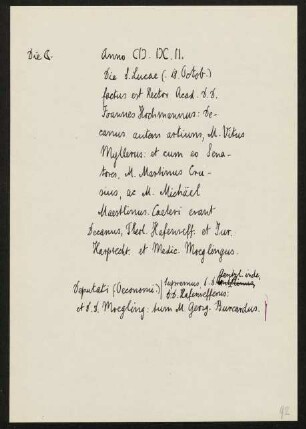 Die ☾.
Anno CIƆ. IƆC. II.
Die S. Lucae (: 18. Octob.)
factus est Rector Acad. D. D.
Joannes Hochmannus: De-
canus autem artium, M. Vitus
Myllerus: et cum eo Sena-
tores, M. Martinus Cru-
sius, ac M. Michäel
Maestlinus. Caeteri erant
Decanus, Theol. Hafenreff. et Jur.
Harpprecht. et Medic. Moeglingus.
Deputati (Oeconomi:) Supremus, D. D.
D. D. Hafenrefferus:
et D. D. Moegling: tum M. Georg. Burcardus.
92